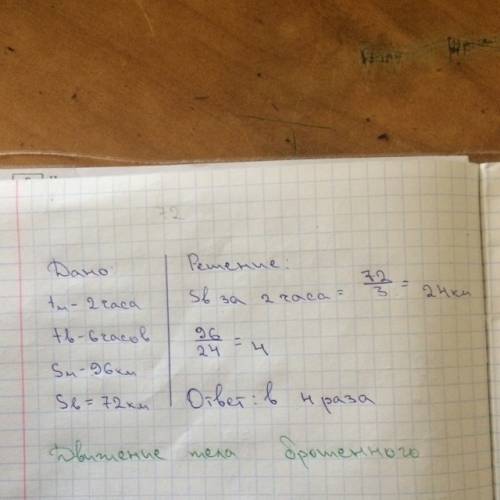 72
Дано:
tм - 2 часа
tв - 6 часов
Sм - 96 км
Sв = 72 км
Решение:
Sв за 2 часа = 72/3 = 24 км
96/24 = 4
Ответ: в 4 раза
Движение тела брошенного